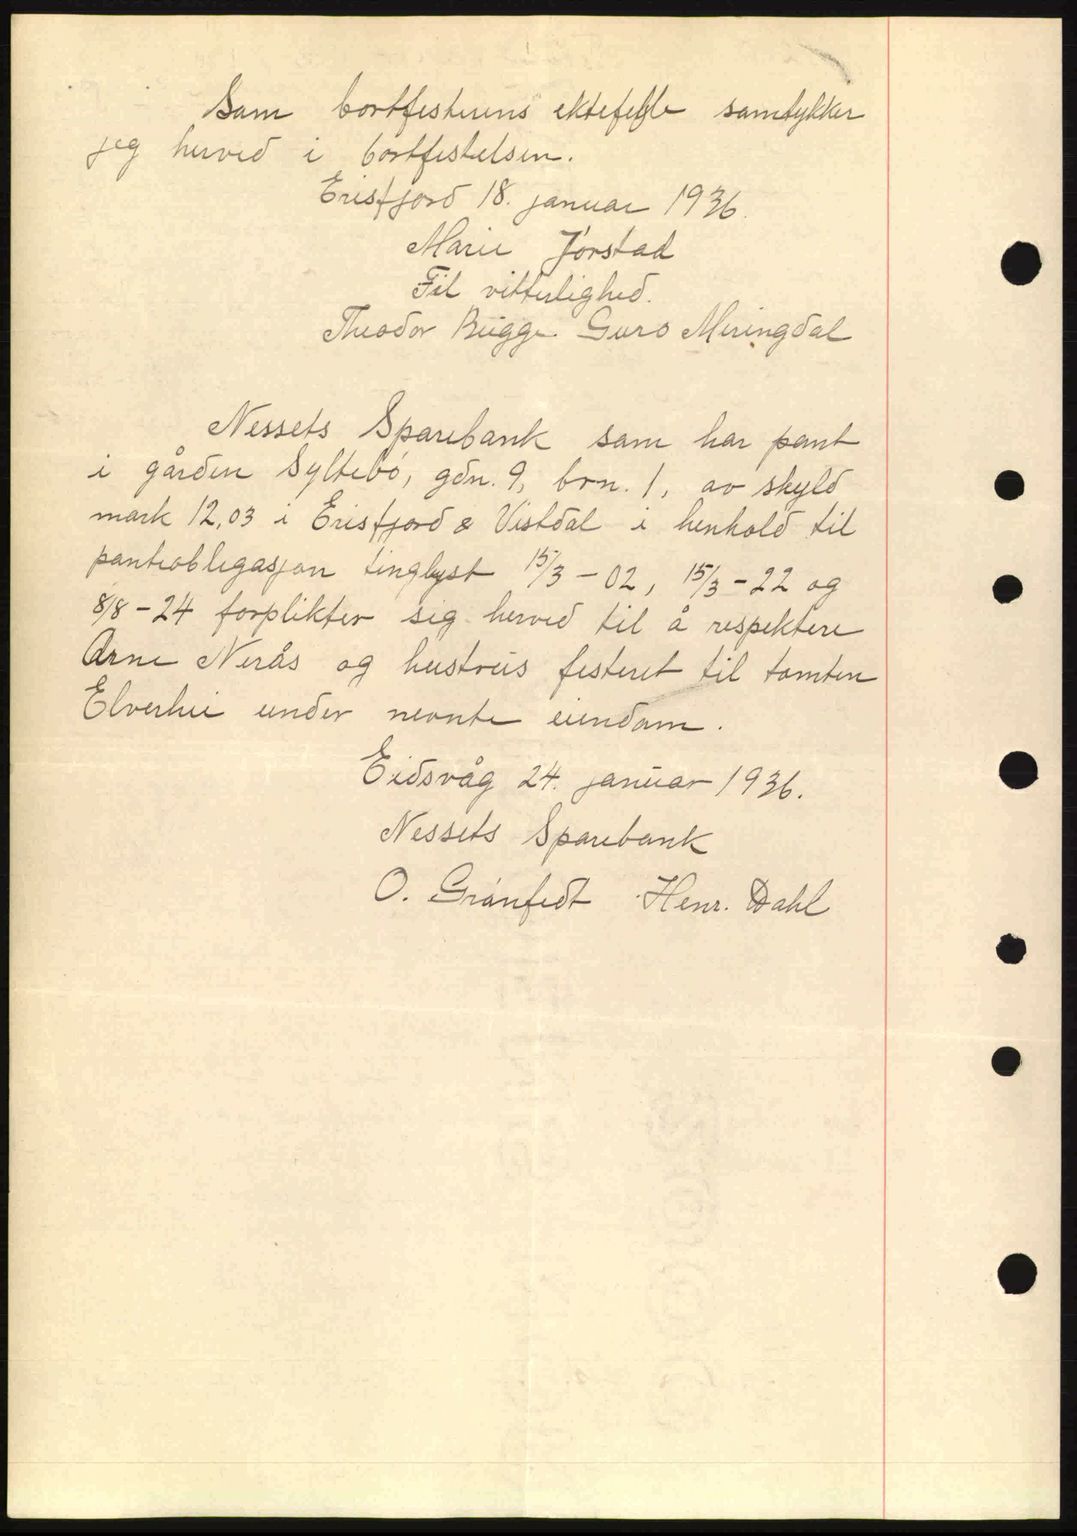 Som bortfesterens ektefelle samtykker
jeg herved i bortfestelsen.
Erisfjord 18. januar 1936.
Marie Jørstad
Til vitterlighed.
Theodor Bugge Guro Meringdal
Nessets Sparebank som har pant
i gården Syltebø, gdn. 9, brn. 1, av skyld
mark 12,03 i Erisfjord & Vistdal i henhold til
panteobligasjon tinglyst 15/3-02, 15/3-22 og
8/8-24 forplikter sig herved til å respektere
Arne Nerås og hustrus festeret til tomten
Elverhei under nevnte eiendom.
Eidsvåg 24. januar 1936.
Nessets Sparebank
O. Grønfedt Henr. Dahl